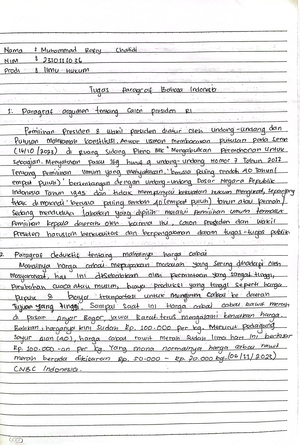 Nama : Muhammad Rafly Chaidi
NIM
Prodi : Ilmu Hukum
Tugas Paragraf Bahasa Indonesia
1. Paragraf argumen tentang calon presiden RI
Pemilihan Presiden & Wakil presiden diatur oleh undang-undang dan
Putusan Mahkamah Konstitusi. Anwar Usman membacakan putusan pada senin
(16/10/2023) di Ruang Sidang Pleno MK "Mengabulkan Permohonan untuk
Sebagian. Menyatakan pasal 169 huruf q undang-undang nomor 7 Tahun 2017
tentang Pemilihan Umum yang menyatakan, 'berusia paling rendah 40 tahun (
empat puluh)' bertentangan dengan undang-undang Dasar Negara Republik
Indonesia Tahun 1945 dan tidak mempunyai kekuatan hukum mengikat, sepanjang
tidak dimaknai 'berusia paling rendah 40 (empat puluh) tahun atau pernah/
Sedang menduduki jabatan yang dipilih melalui pemilihan umum termasuk
Pemilihan kepala daerah oleh karena itu, calon presiden dan wakil
Presiden haruslah berkualitas dan berpengalaman dalam tugas-tugas politik
2. Paragraf deduktif tentang mahalnya harga cabai
Mahalnya harga cabai merupakan masalah yang sering dihadapi oleh
Masyarakat, hal ini disebabkan oleh permintaan yang sangat tinggi,
Perubahan cuaca atau musim, biaya produksi yang tinggi seperti harga
Pupuk & biaya transportasi untuk mengirim cabai ke daerah
tujuan yang tinggi. Sampai saat ini harga cabai rawit merah
di pasar Anyar Bogor, Jawa Barat terus mengalami kenaikan harga.
Bahkan, harganya kini sudah Rp. 100.000 per kg. Menurut pedagang
Sayur Dian (40), harga cabai rawit merah sudah lima hari ini bertahan
Rp. 100.000 -an per kg. Yang mana normalnya harga cabai rawit
merah berada dikisaran Rp. 50.000 - Rp. 70.000 kg. (06/11/2023)
CNBC Indonesia.